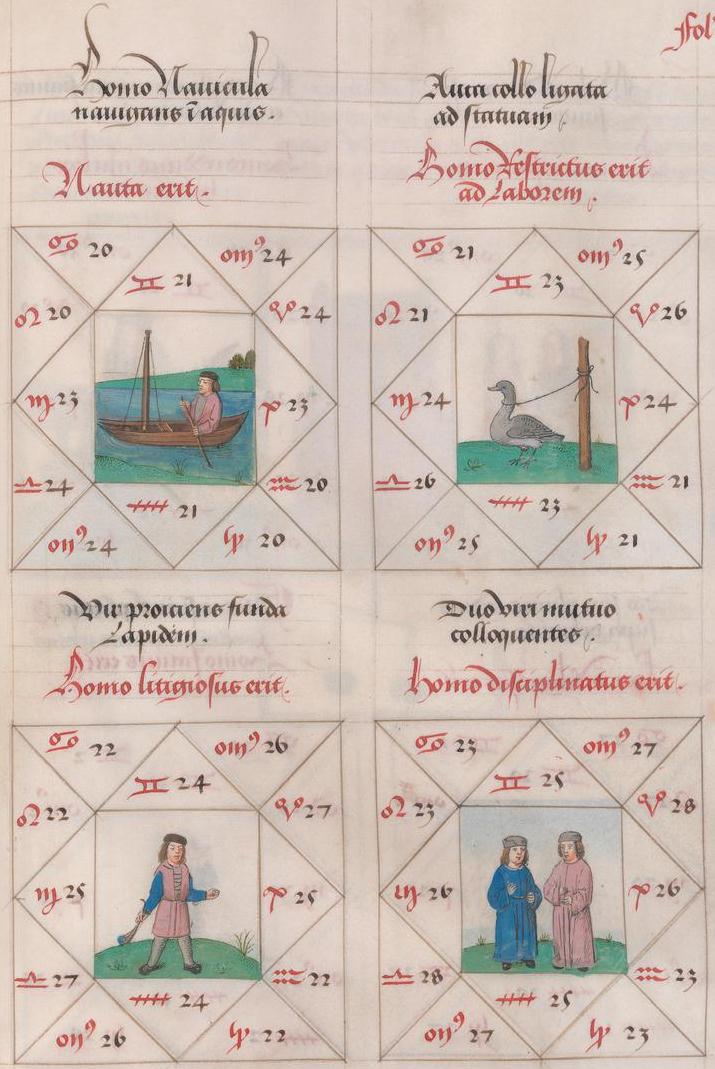 Fol
Homo Navicula
navigans ī aquis.
Nauta erit.
♋ 20
om⁹ 24
♊ 21
♌ 20
24
♍ 23
23
♎ 24
♒ 20
21
om⁹ 24
20
Auca collo ligata
ad statuam
Homo Restrictus erit
ad Laborem.
♋ 21
om⁹ 25
♊ 23
♌ 21
26
♍ 24
24
♎ 26
♒ 21
23
om⁹ 25
21
Vir proiciens funda
Lapidem.
Homo litigiosus erit.
♋ 22
om⁹ 26
♊ 24
♌ 22
27
♍ 25
25
♎ 27
♒ 22
24
om⁹ 26
22
Duo viri mutuo
colloquentes.
Homo disciplinatus erit.
♋ 23
om⁹ 27
♊ 25
♌ 23
28
♍ 26
26
♎ 28
♒ 23
25
om⁹ 27
23